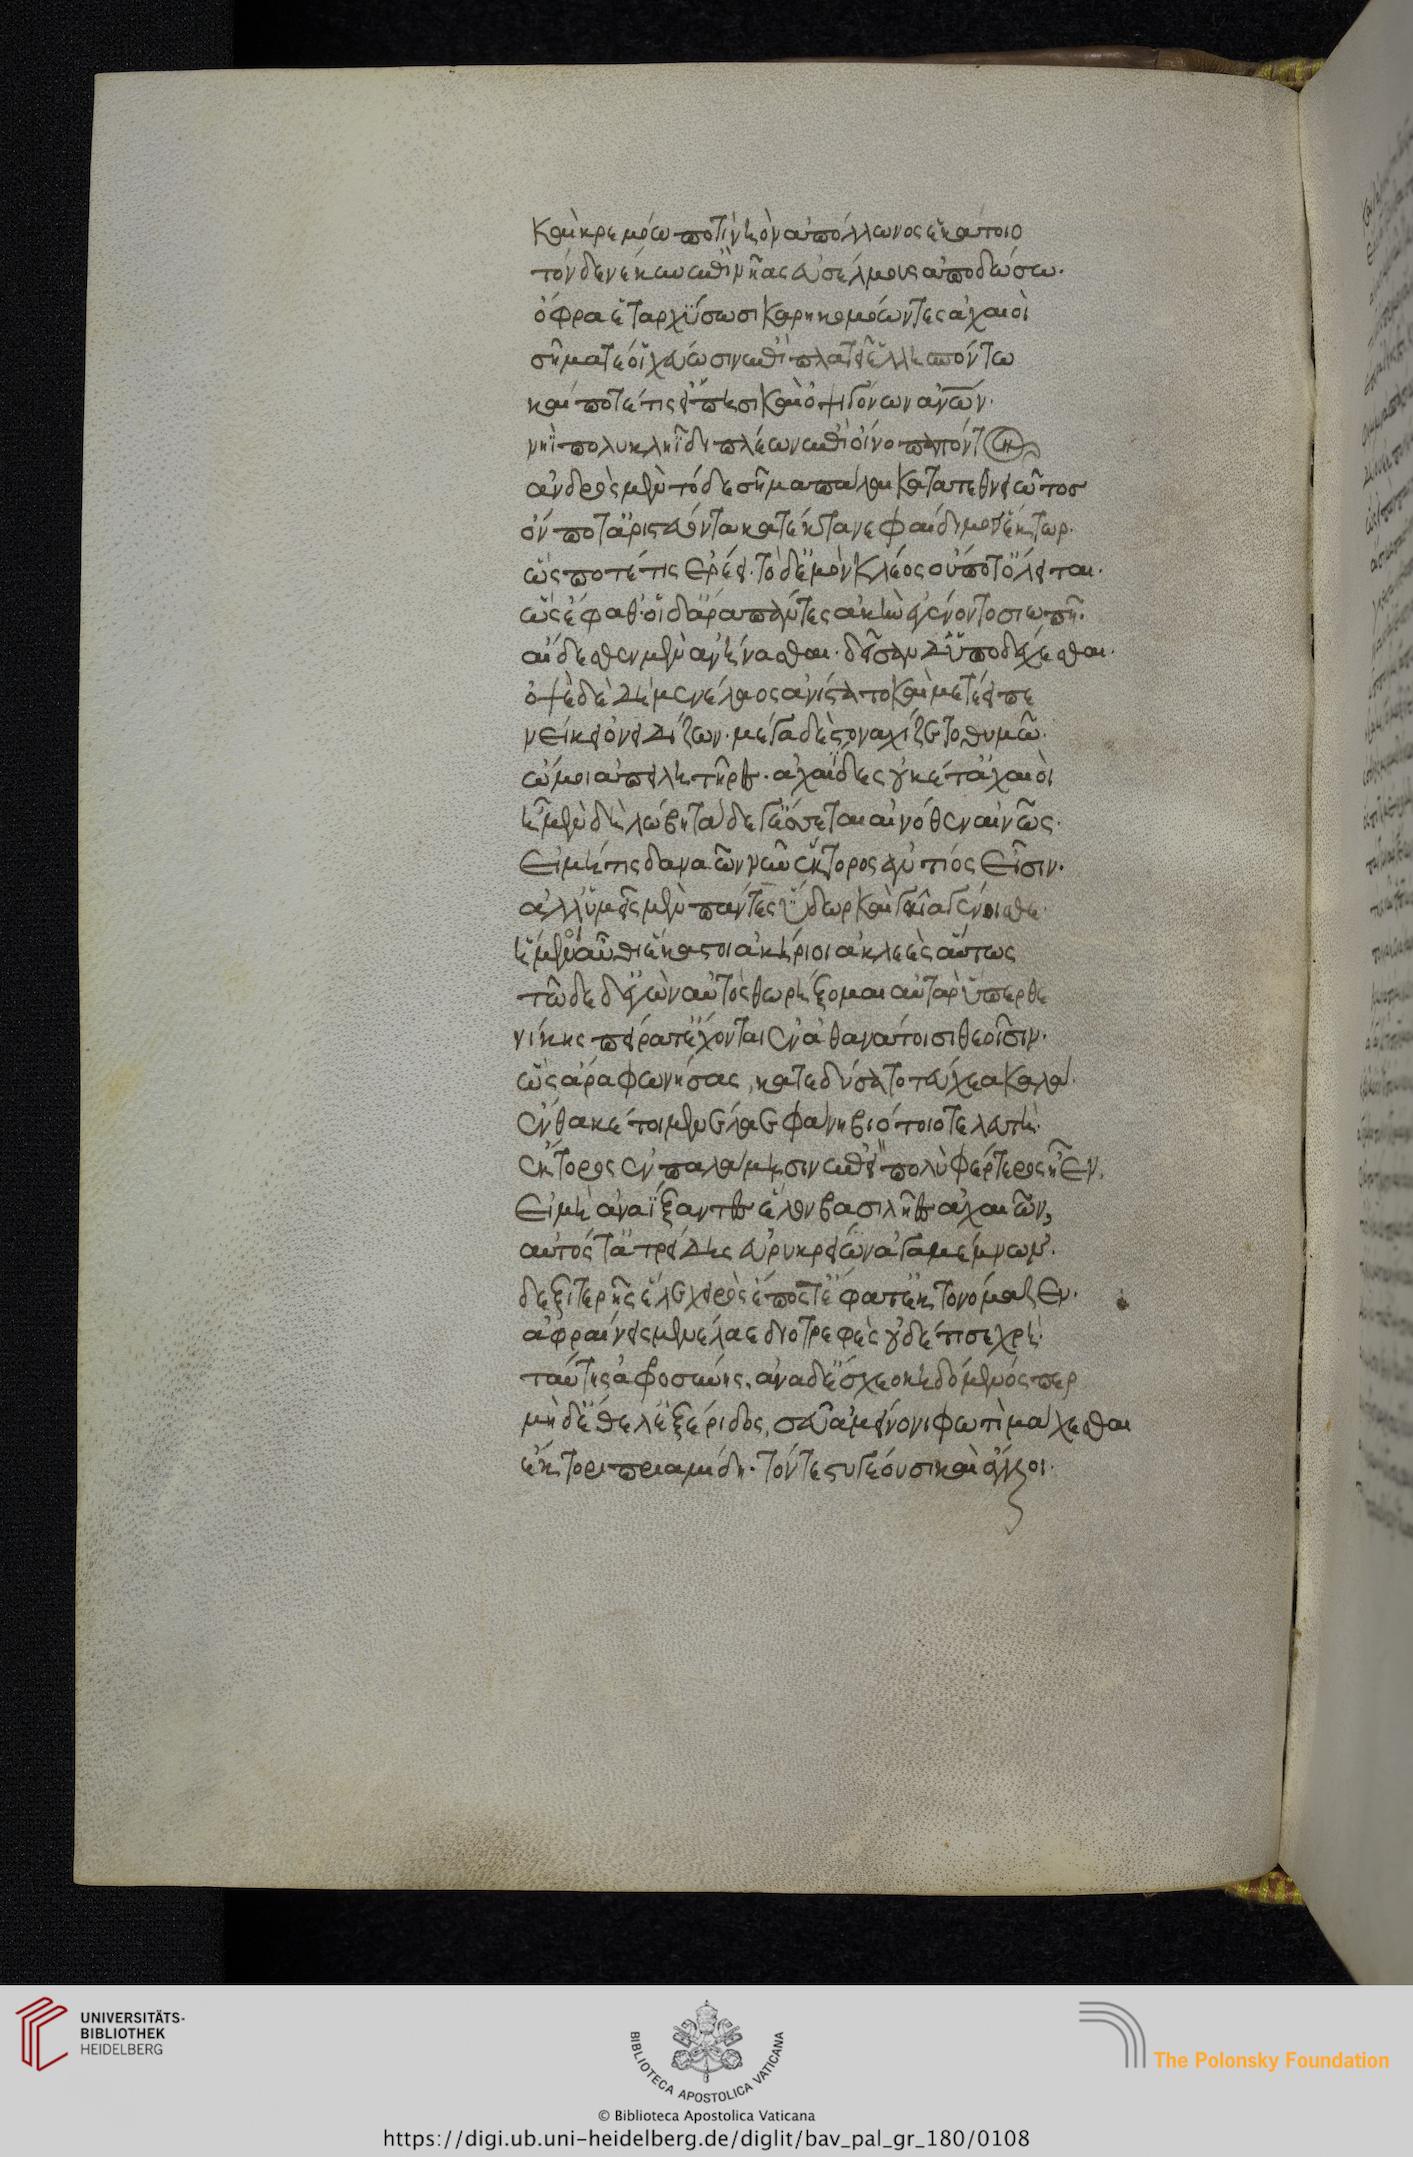 καὶ κρεμόω ποτὶ νηὸν ἀπόλλωνος ἑκάτοιο
τὸν δὲ νέκυν ἐπὶ νῆας ἐϋσέλμους ἀποδώσω·
ὄφρα ἑ ταρχύσωσι καρηκομόωντες ἀχαιοὶ
σῆμα τέ οἱ χεύωσιν ἐπὶ πλατεῖ ἑλλησπόντω
καί ποτέ τις εἴπησι καὶ ὀψιγόνων ἀνῶν·
νηῒ πολυκλήϊδι πλέων ἐπὶ οἴνοπα πόντον
ἀνδρὸς μὲν τόδε σῆμα πάλαι κατατεθνειῶτος
ὅν ποτ' ἀριστεύοντα κατέκτανε φαίδιμος ἕκτωρ·
ὥς ποτέ τις ἐρέει· τὸ δ' ἐμὸν κλέος οὔποτ' ὀλεῖται·
ὣς ἔφαθ' οἱ δ' ἄρα πάντες ἀκὴν ἐγένοντο σιωπῆ·
αἴδεσθεν μὲν ἀνήνασθαι· δεῖσαν δ' ὑποδέχεσθαι·
ὀψὲ δὲ δὴ μενέλαος ἀνίστατο καὶ μετέειπε
νείκει ὀνειδίζων· μέγα δὲ στοναχίζετο θυμῶ·
ὤμοι ἀπειλητῆρες· ἀχαιΐδες οὐκέτ' ἀχαιοὶ
ἦ μὲν δὴ λώβη τάδε γ' ἔσσεται αἰνόθεν αἰνῶς·
εἰ μή τις δαναῶν νῦν ἕκτορος ἀντίος εἶσιν·
ἀλλ' ὑμεῖς μὲν πάντες ὕδωρ καὶ γαῖα γένοισθε·
ἥμενοι αὖθι ἕκαστοι ἀκήριοι ἀκλεὲς αὔτως
τῶδε δ' ἐγὼν αὐτὸς θωρήξομαι αὐτὰρ ὕπερθε
νίκης πείρατ' ἔχονται ἐν ἀθανάτοισι θεοῖσιν·
ὣς ἄρα φωνήσας, κατεδύσατο τεύχεα καλά·
ἔνθα κέ τοι μενέλαε φάνη βιότοιο τελευτὴ·
ἕκτορος ἐν παλάμησιν ἐπεὶ πολὺ φέρτερος ἦεν·
εἰ μὴ ἀναΐξαντες ἕλον βασιλῆες ἀχαιῶν,
αὐτός τ' ἀτρείδης εὐρυκρείων ἀγαμέμνων·
δεξιτερῆς ἕλε χειρὸς ἔπος τ' ἔφατ' ἔκ τ' ὀνόμαζεν·
ἀφραίνεις μενέλαε διοτρεφὲς οὐδέ τί σε χρὴ·
ταύτης ἀφροσύνης, ἀνὰ δ' ἔσχεο κηδόμενός περ
μὴ δ' ἔθελ' ἐξ ἔριδος, σεῦ ἀμείνονι φωτὶ μάχεσθαι
ἕκτορι πριαμίδη· τόν τε στυγέουσι καὶ ἄλλοι·
UNIVERSITÄTS-
BIBLIOTHEK
HEIDELBERG
BIBLIOTECA APOSTOLICA VATICANA
The Polonsky Foundation
© Biblioteca Apostolica Vaticana
https://digi.ub.uni-heidelberg.de/diglit/bav_pal_gr_180/0108